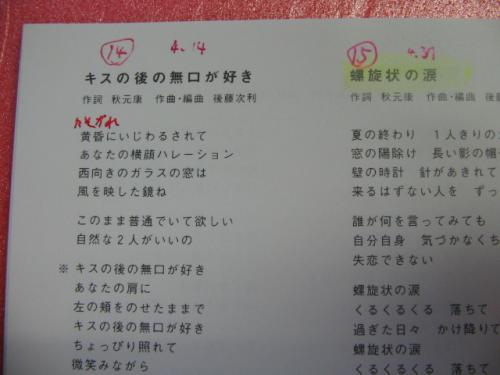 14 4.14
キスの後の無口が好き
作詞 秋元康 作曲・編曲 後藤次利
たそがれ
黄昏にいじわるされて
あなたの横顔ハレーション
西向きのガラスの窓は
風を映した鏡ね
このまま普通でいて欲しい
自然な2人がいいの
※ キスの後の無口が好き
あなたの肩に
左の頬をのせたままで
キスの後の無口が好き
ちょっぴり照れて
微笑みながら
15 4.31
螺旋状の涙
作詞 秋元康 作曲・編曲 後
夏の終わり 1人きりの
窓の陽除け 長い影の帽
壁の時計 針があきれて
来るはずない人を ずっ
誰が何を言ってみても
自分自身 気づかなくち
失恋できない
螺旋状の涙
くるくるくる 落ちて
過ぎた日々 かけ降りて
螺旋状の涙
くるくるくる 落ちて